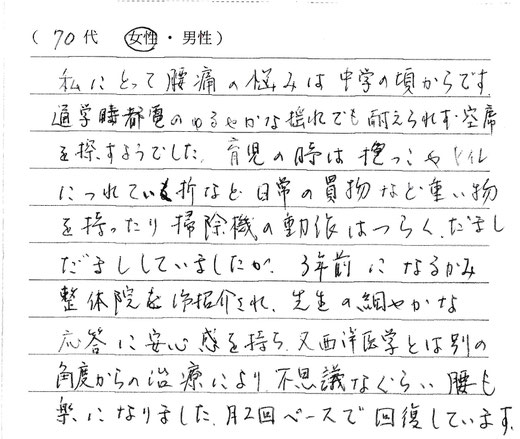 （70代　女性・男性）
私にとって腰痛の悩みは中学の頃からです。
通学時都電のゆるやかな揺れでも耐えられず空席
を探すようでした。育児の時は抱っこやトイレ
につれていく折など日常の買物など重い物
を持ったり掃除機の動作はつらく、だまし
だまししていましたが、3年前になるかみ
整体院を紹介され、先生の細やかな
応答に安心感を持ち、又西洋医学とは別の
角度からの治療により不思議なぐらい腰も
楽になりました。月2回ペースで回復しています。